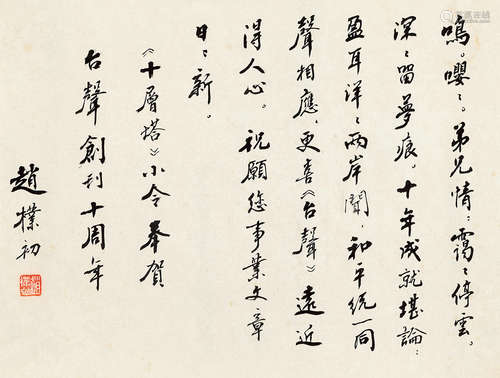 鳴。嚶〻。弟兄情：靄〻停雲。
深〻留夢痕。十年成就堪論：
盈耳洋〻兩岸聞，和平統一同
聲相應，更喜《台聲》遠近
得人心。祝願您事業文章
日〻新。
《十層塔》小令奉賀
台聲創刊十周年
趙樸初